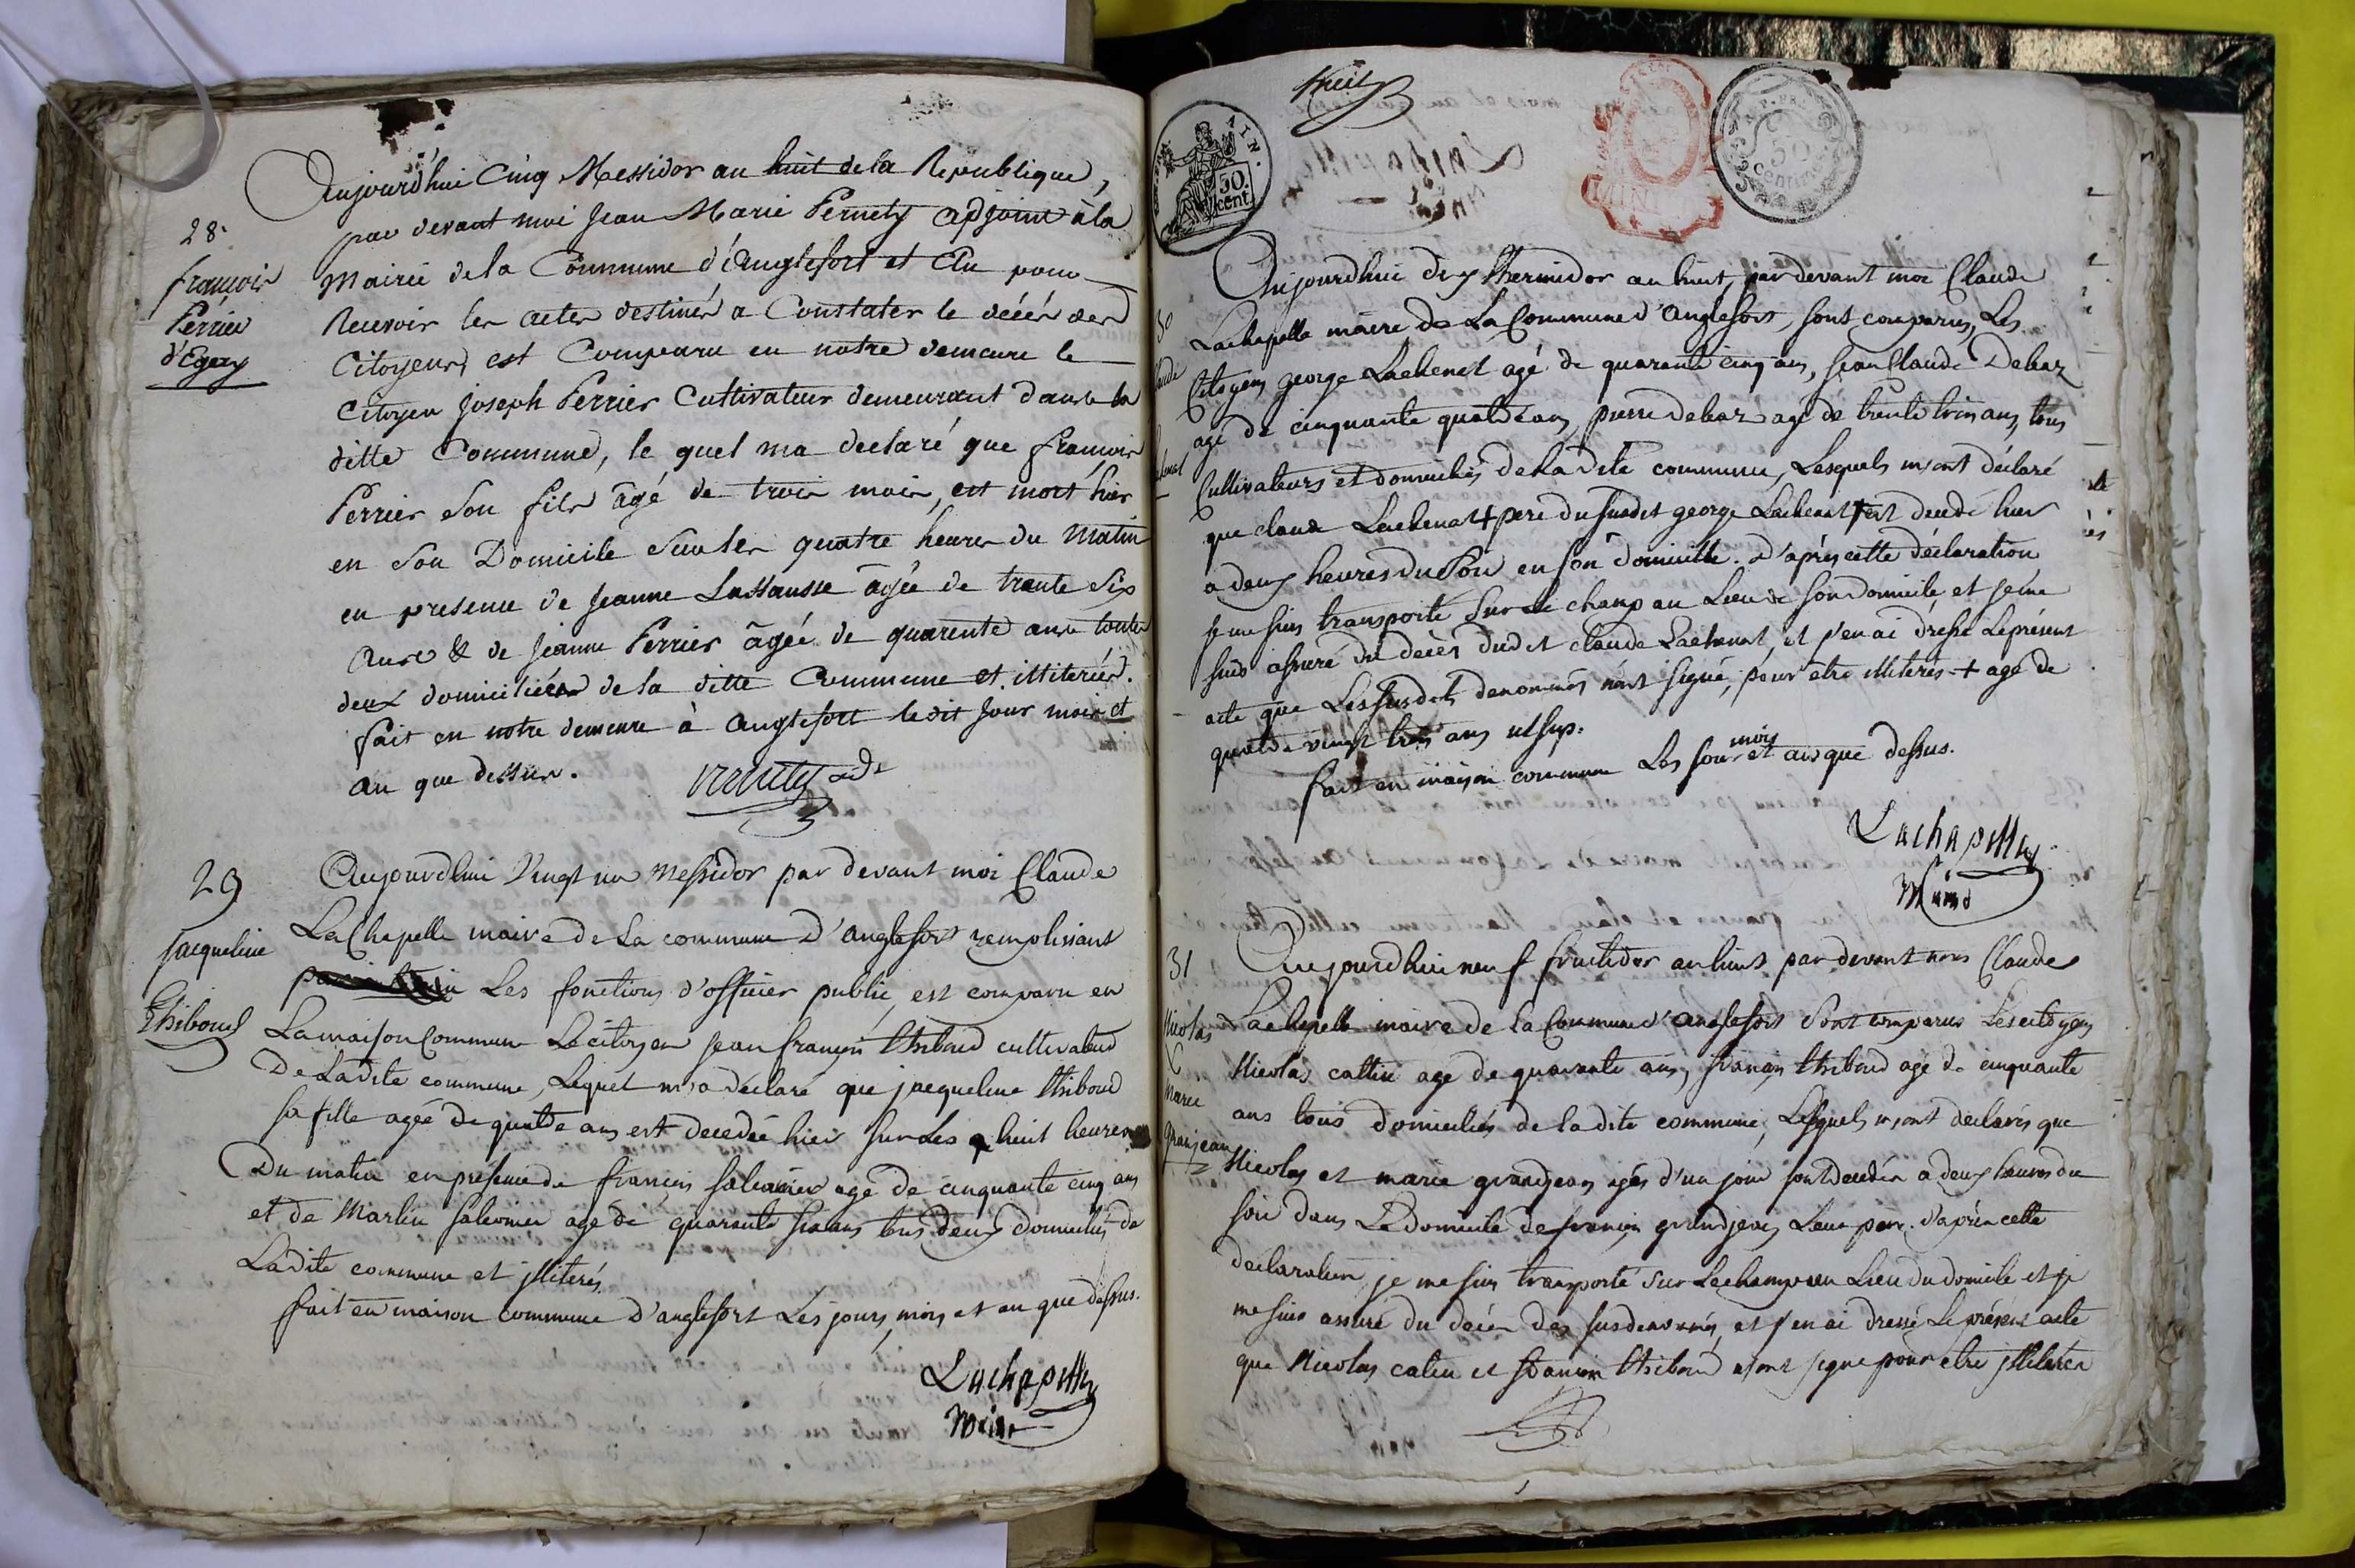 Aujourd'hui Cinq Messidor an huit de la Republique,
par devant moi Jean Marie Pernety adjoint à la
28.
françois
Perrier
d'Egery
Mairie de la Commune d'Anglefort et Elu pour
Recevoir les actes destinés a Constater le décés des
Citoyens, est Comparu en notre demeure le
Citoyen Joseph Perrier Cultivateur demeurant dans la
ditte Commune, le quel ma declaré que françois
Perrier Son fils âgé de trois mois, est mort hier
en Son Domicile Sur les quatre heures du Matin
en presence de Jeanne Lassausse âgée de trente Six
Ans & de Jeanne Perrier âgée de quarente ans toutes
deux domiciliées de la ditte Commune et illiterées.
fait en notre demeure à Anglefort le dit Jour mois et
an que dessus.
29
Jacqueline
Thiboud
Aujourdhui Vingt un Messidor par devant moi Claude
LaChapelle maire de La commune D'anglefort remplissant
Les fonctions d'officier public, est comparu en
La maison Commune Le citoyen Jean françois Thiboud cultivateur
De Ladite commune, Lequel m'a déclaré que jacqueline thiboud
sa fille agée de quatre ans est decedée hier sur Les huit heures
Du matin en présence de françois agé de cinquante cinq ans
et de Martin agé de quarante six ans tous deux domiciliés de
Ladite commune et illiterés.
fait en maison commune d'anglefort Les jours, mois et an que dessus.
Lachapelle
Maire
huit
AIN.
50.
cent.
50
centimes
Aujourdhui dix thermidor an huit, par devant moi Claude
Lachapelle maire de La Commune d'Anglefort, sont comparus, Les
Citoyens george Lachenat agé de quarante cinq ans, Jean Claude Debaz
agé de cinquante quatre ans, pierre debaz agé de trente trois ans, tous
Cultivateurs et domiciliés de La dite commune, Lesquels m'ont déclaré
que claude Lachenat + pere du susdit george Lachenat est decedé hier
a deux heures du Soir en son domicille. D'après cette déclaration
je me suis transporté Sur Le champ au Lieu de son domicile, et je me
suis assuré du decès dudit claude Lachenat, et j'en ai dressé Le présent
acte que Les susdits denommés n'ont signé, pour être illiterés + agé de
quatre vingt trois ans ut sup.
fait en maison commune Les jour mois et an que dessus.
Lachapelle
Maire
31
Nicolas
&
Marie
granjean
Aujourdhui neuf fructidor an huit par devant nous Claude
Lachapelle maire de La Commune d'Anglefort Sont comparus Les citoyens
Nicolas cattin agé de quarante ans, françois thiboud agé de cinquante
ans tous domiciliés de la dite commune, Lesquels m'ont déclarés que
Nicolas et marie grandjean agés d'un jour sont decedés a deux heures du
soir dans Le domicile de françois grandjean, Leur pere. d'après cette
déclaration je me suis transporté Sur Le champ au Lieu du domicile et je
me suis assuré du décès des susdenommés, et j'en ai dressé Le présent acte
que Nicolas catin et françois thiboud n'ont signé pour etre illiterés